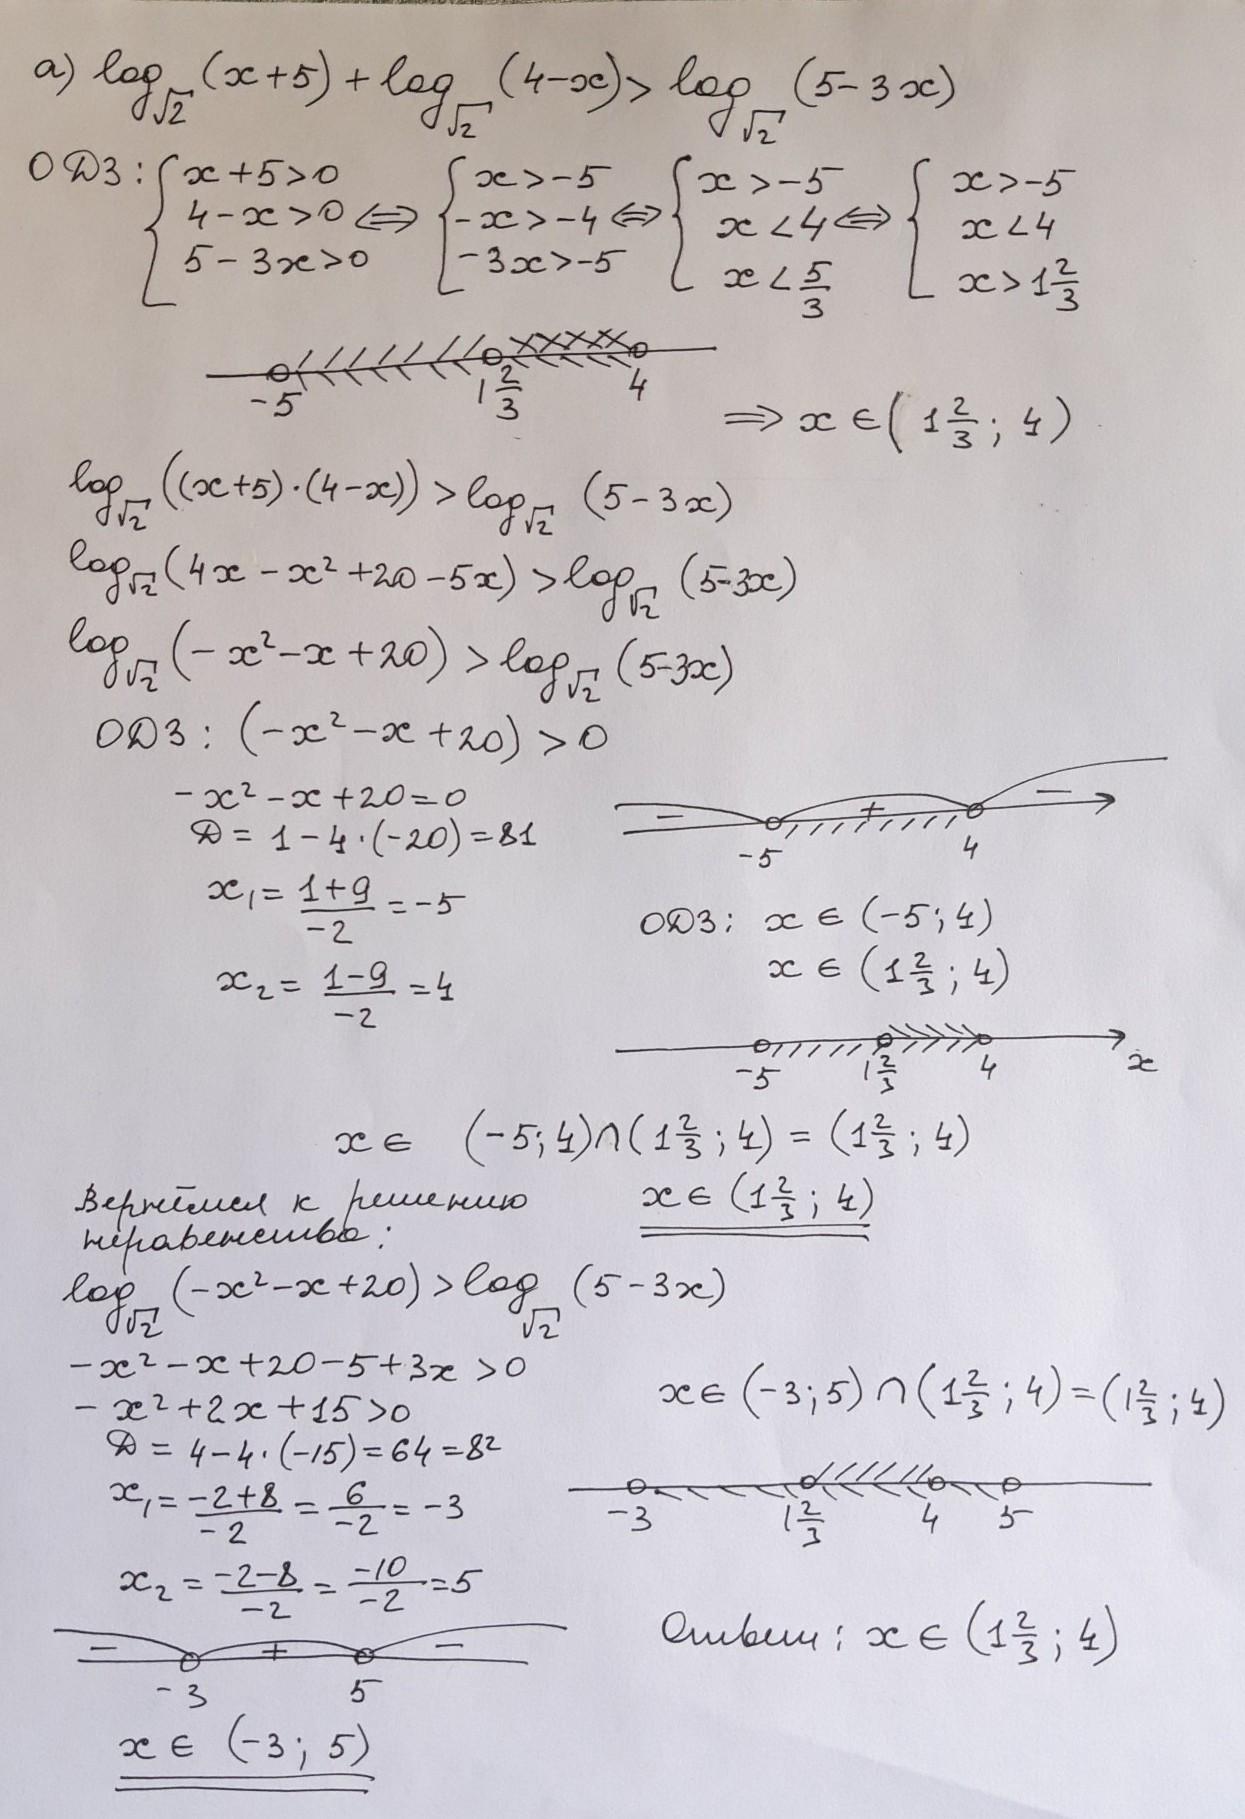 а) log_√2 (x+5) + log_√2 (4-x) > log_√2 (5-3x)
ОДЗ: { x+5>0 ⇔ { x>-5 ⇔ { x>-5 ⇔ { x>-5
4-x>0 -x>-4 x<4 x<4
5-3x>0 -3x>-5 x<5/3 x>1 2/3
-5 1 2/3 4
⇒ x∈(1 2/3; 4)
log_√2 ((x+5)·(4-x)) > log_√2 (5-3x)
log_√2 (4x-x²+20-5x) > log_√2 (5-3x)
log_√2 (-x²-x+20) > log_√2 (5-3x)
ОДЗ: (-x²-x+20) > 0
-x²-x+20=0
Д = 1-4·(-20)=81
x₁ = (1+9)/-2 = -5
x₂ = (1-9)/-2 = 4
- + -
-5 4
ОДЗ: x∈(-5; 4)
x∈(1 2/3; 4)
-5 1 2/3 4 x
x∈ (-5; 4)∩(1 2/3; 4) = (1 2/3; 4)
x∈(1 2/3; 4)
Вернёмся к решению
неравенства:
log_√2 (-x²-x+20) > log_√2 (5-3x)
-x²-x+20-5+3x>0
-x²+2x+15>0
Д = 4-4·(-15)=64=8²
x₁ = (-2+8)/-2 = 6/-2 = -3
x₂ = (-2-8)/-2 = -10/-2 = 5
- + -
-3 5
x∈(-3; 5)
x∈(-3; 5)∩(1 2/3; 4)=(1 2/3; 4)
-3 1 2/3 4 5
Ответ: x∈(1 2/3; 4)